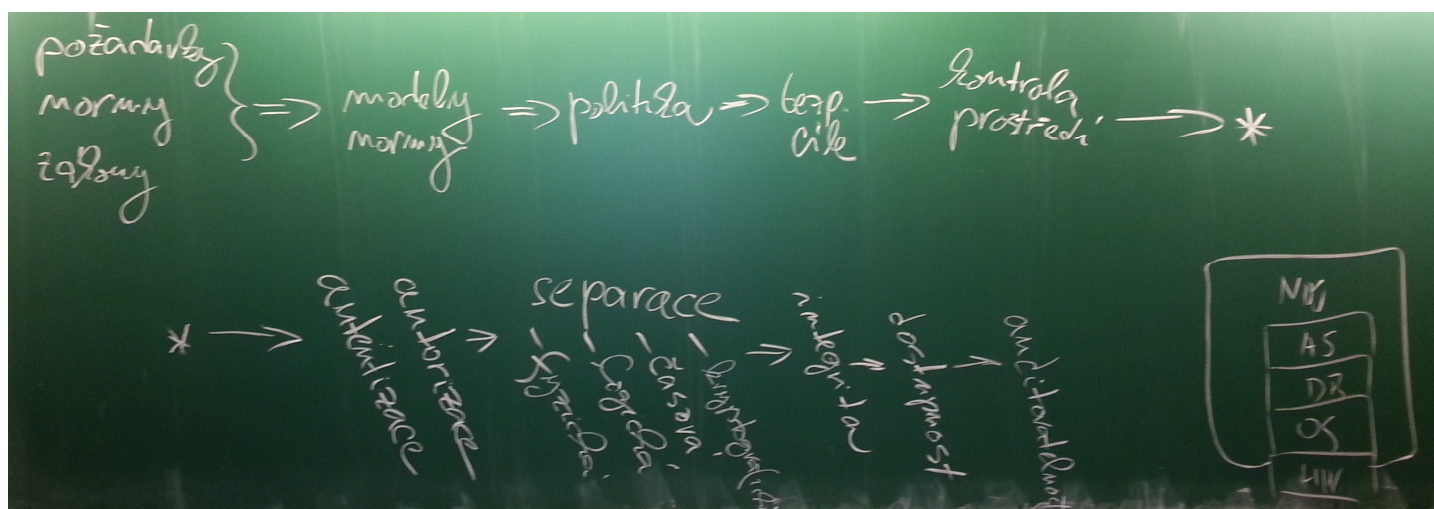 požadavky
normy
zákony
} => modely
normy
=> politika -> bezp.
cíle
-> kontrola
prostředí
-> *
* ->
autentizace
autorizace
->
separace
- fyzická
- logická
- časová
- kryptografická
=> integrita
-> dostupnost
-> auditovatelnost
AS
DB
OS
HW